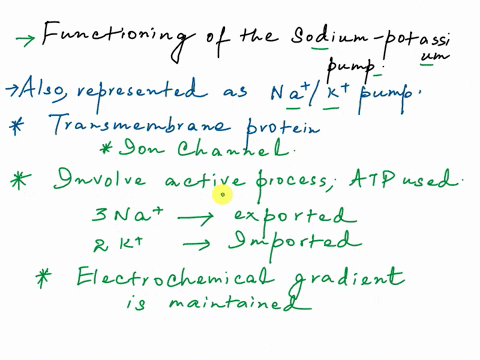 → Functioning of the Sodium-potassi
um
pump.
→ Also, represented as Na⁺/K⁺ pump.
* Transmembrane protein
* Ion Channel.
* Involve active process; ATP used.
3 Na⁺ → exported
2 K⁺ → Imported
* Electrochemical gradient
is maintained